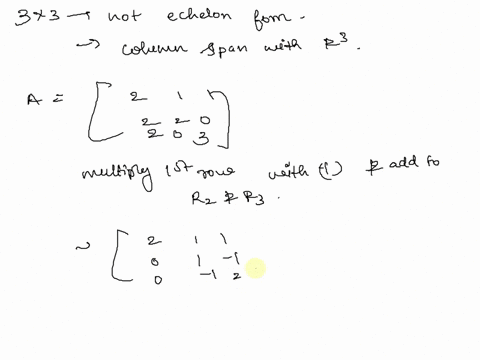 3×3 → not echelon form.
→ column span with R³.
A = [ 2 1 1
2 2 0
2 0 3 ]
multiply 1st row with (-1) & add to
R₂ & R₃.
~ [ 2 1 1
0 1 -1
0 -1 2